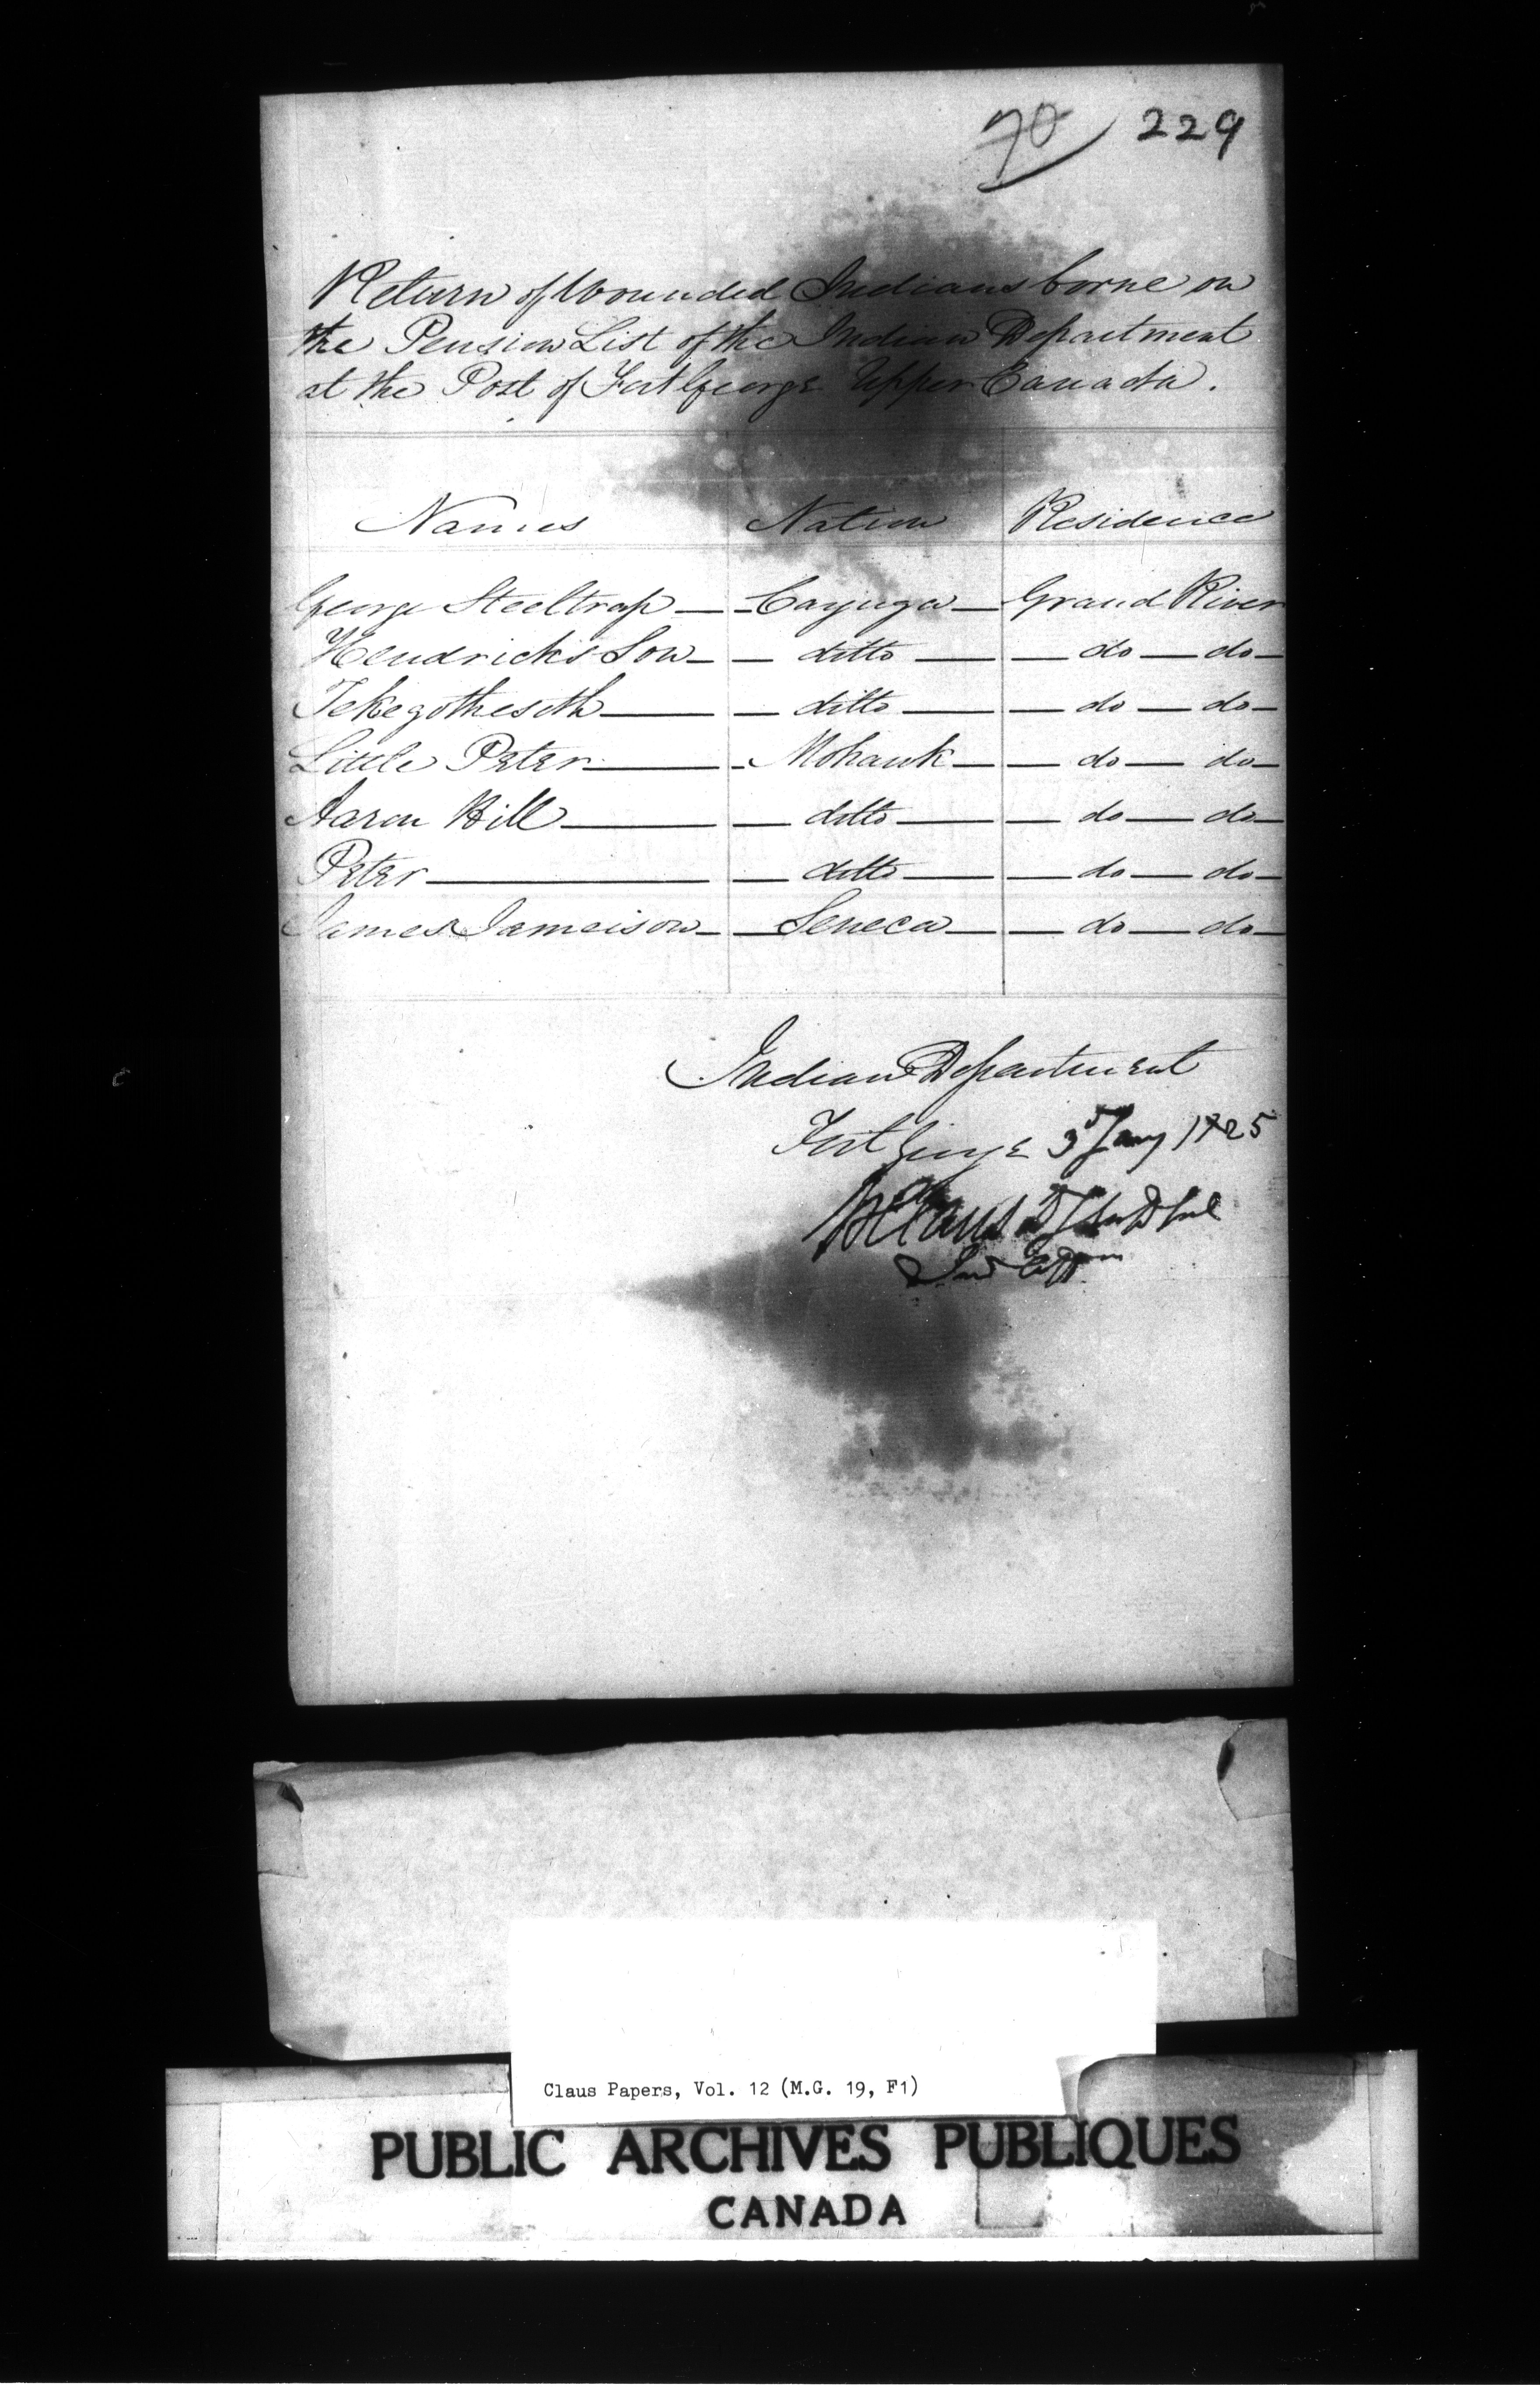 70 229
Return of Wounded Indians borne on
the Pension List of the Indian Department
at the Post of Fort George Upper Canada.
Names Nation Residence
George Steeltrap — Cayuga — Grand River
Hendricks Son — ditto — do — do —
Tekegothesoth — ditto — do — do —
Little Peter — Mohawk — do — do —
Aaron Hill — ditto — do — do —
Peter — ditto — do — do —
James Jameison — Seneca — do — do —
Indian Department
Fort George 3d Jany 1825
W Claus
Claus Papers, Vol. 12 (M.G. 19, F1)
PUBLIC ARCHIVES PUBLIQUES
CANADA